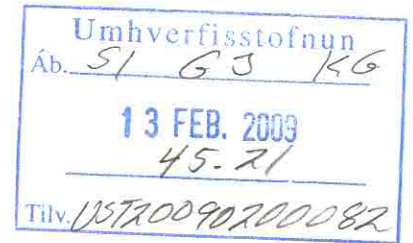 Umhverfisstofnun
Áb. SI GJ KG
13 FEB. 2009
45.21
Tilv. UST20090200082